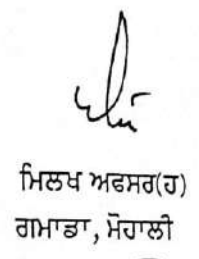 ਮਿਲਖ ਅਫਸਰ(ਹ)
ਗਮਾਡਾ, ਮੋਹਾਲੀ